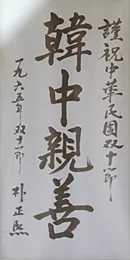 謹祝中華民國双十節
韓中親善
一九六五年双十節
朴正熙